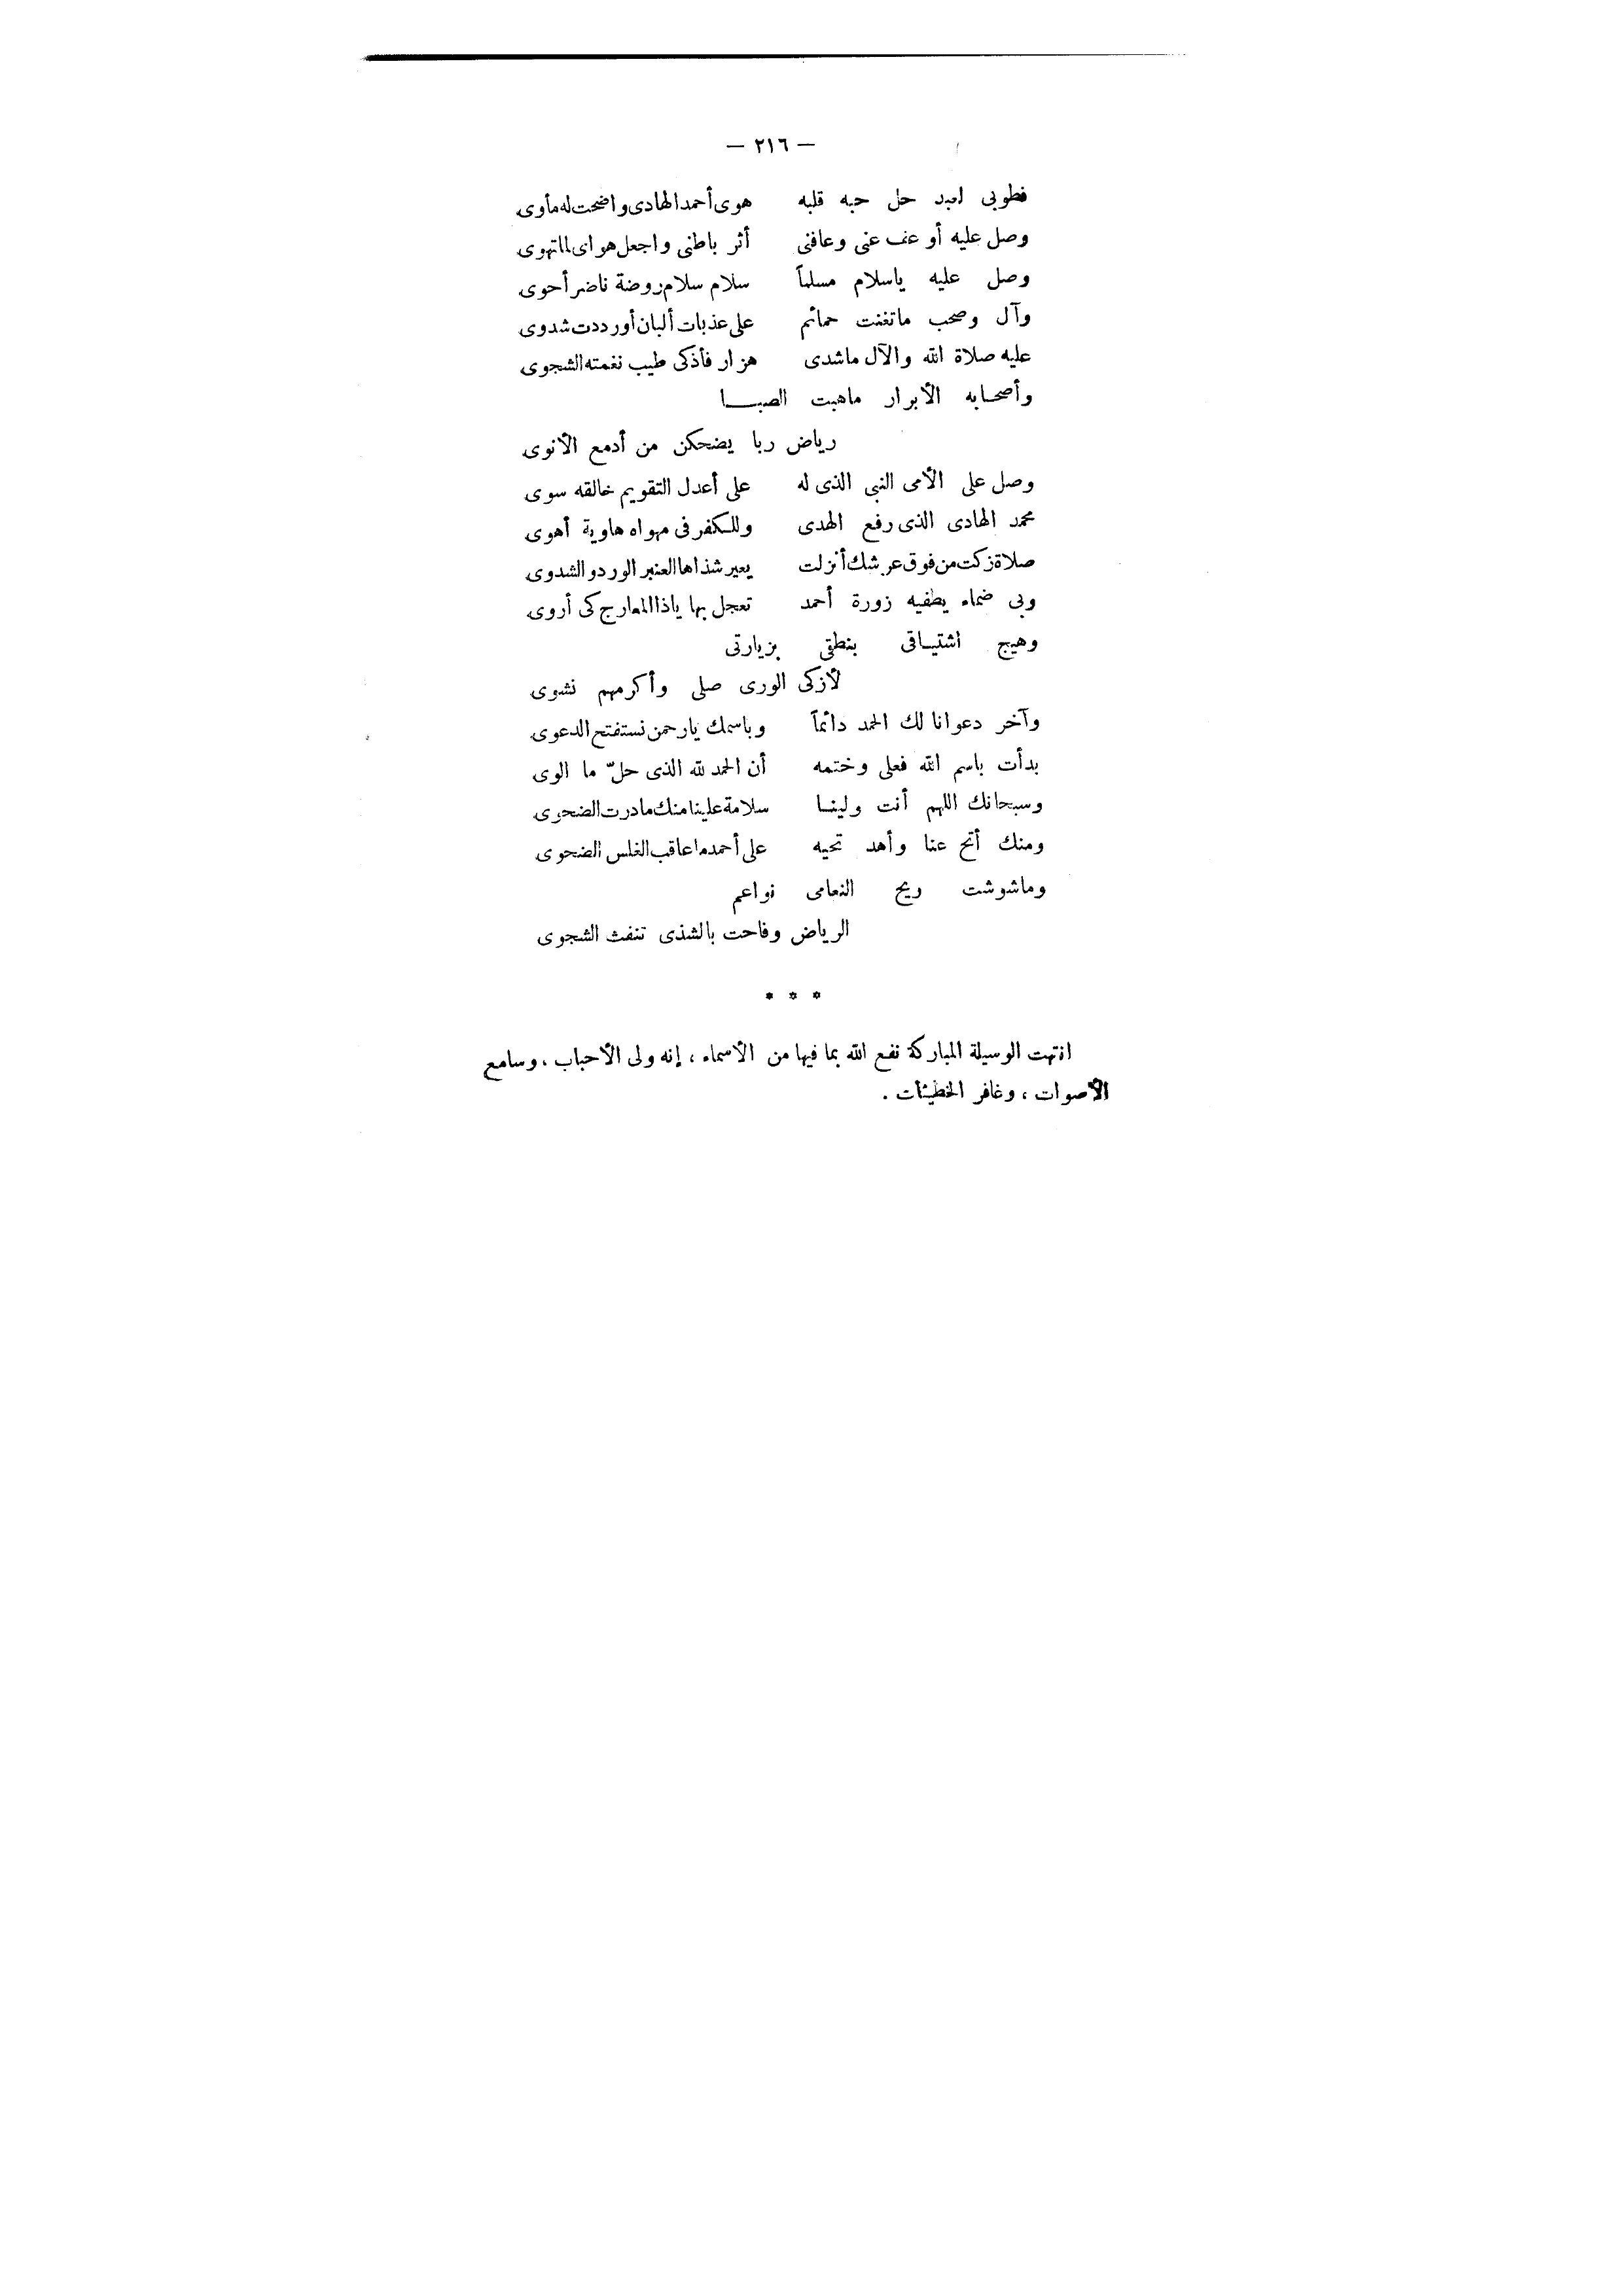 — ٢١٦ —
فطوبى لعبد حل حبه قلبه هوى أحمد الهادى واضحت له مأوى
وصل عليه أو عف عنى وعافنى أثر باطنى واجعل هواى لما تهوى
وصل عليه ياسلام مسلماً سلام سلام روضة ناضر أحوى
وآل وصحب ماتغنت حمائم على عذبات ألبان أورددت شدوى
عليه صلاة الله والآل ماشدى هزار فأذكى طيب نغمته الشجوى
وأصحابه الأبرار ماهبت الصبا
رياض ربا يضحكن من أدمع الأنوى
وصل على الأمى النبى الذى له على أعدل التقويم خالقه سوى
محمد الهادى الذى رفع الهدى وللكفر فى مهواه هاوية أهوى
صلاة زكت من فوق عرشك أنزلت يعير شذاها العنبر الورد والشدوى
وبى ضماء يطفيه زورة أحمد تعجل بها ياذا المعارج كى أروى
وهيج اشتياقى بنطقى بزيارتى
لأزكى الورى صلى وأكرمهم نشوى
وآخر دعوانا لك الحمد دائماً وباسمك يارحمن نستفتح الدعوى
بدأت باسم الله فعلى وختمه أن الحمد لله الذى حلّ ما الوى
وسبحانك اللهم أنت ولينا سلامة علينا منك مادرت الضحوى
ومنك أتح عنا وأهد تحيه على أحمد ماعاقب الغلس الضحوى
وماشوشت ريح النعامى نواعم
الرياض وفاحت بالشذى تنفث الشجوى
* * *
انتهت الوسيلة المباركة نفع الله بما فيها من الأسماء ، إنه ولى الأحباب ، وسامع
الأصوات ، وغافر الخطيئات .